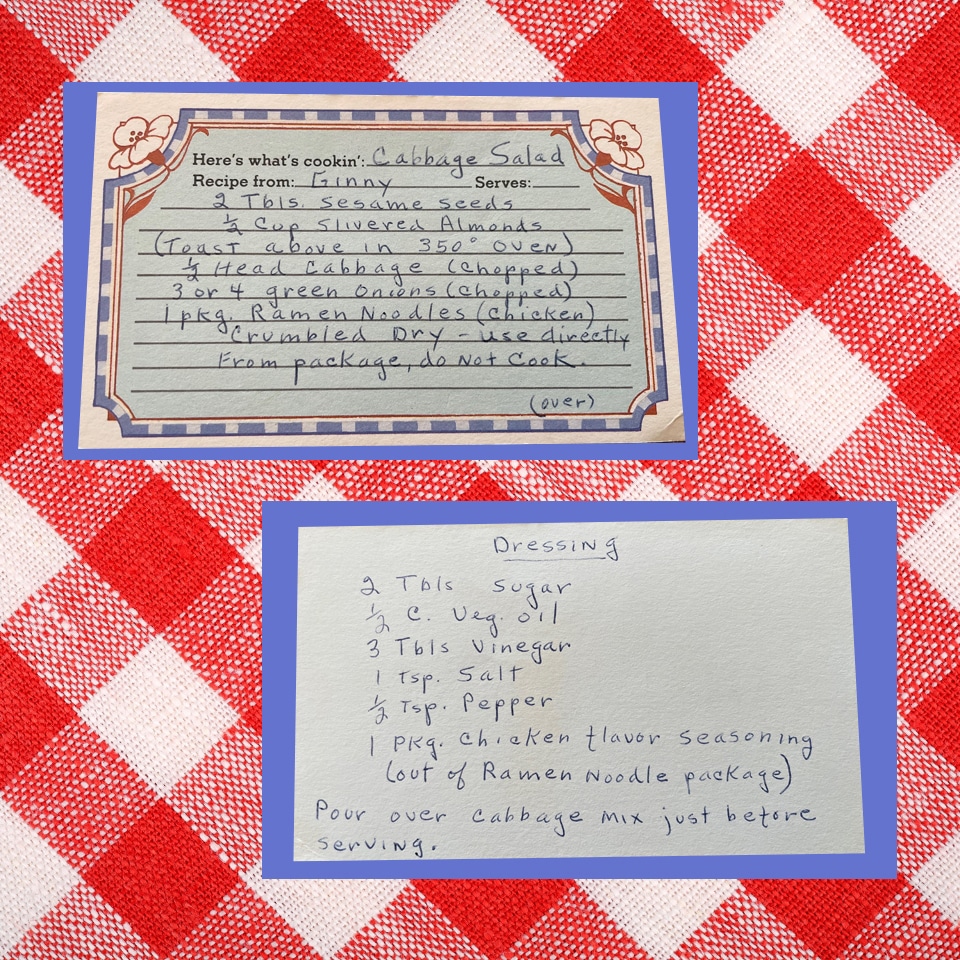 Here's what's cookin': Cabbage Salad
Recipe from: Ginny Serves:
2 Tbls. sesame seeds
½ Cup Slivered Almonds
(Toast above in 350° oven)
½ Head Cabbage (chopped)
3 or 4 green onions (chopped)
1 pkg. Ramen Noodles (chicken)
Crumbled Dry - use directly
From package, do Not Cook.
(over)
Dressing
2 Tbls sugar
½ C. Veg. oil
3 Tbls Vinegar
1 Tsp. Salt
½ Tsp. Pepper
1 Pkg. Chicken flavor seasoning
(out of Ramen Noodle package)
Pour over cabbage mix just before
serving.